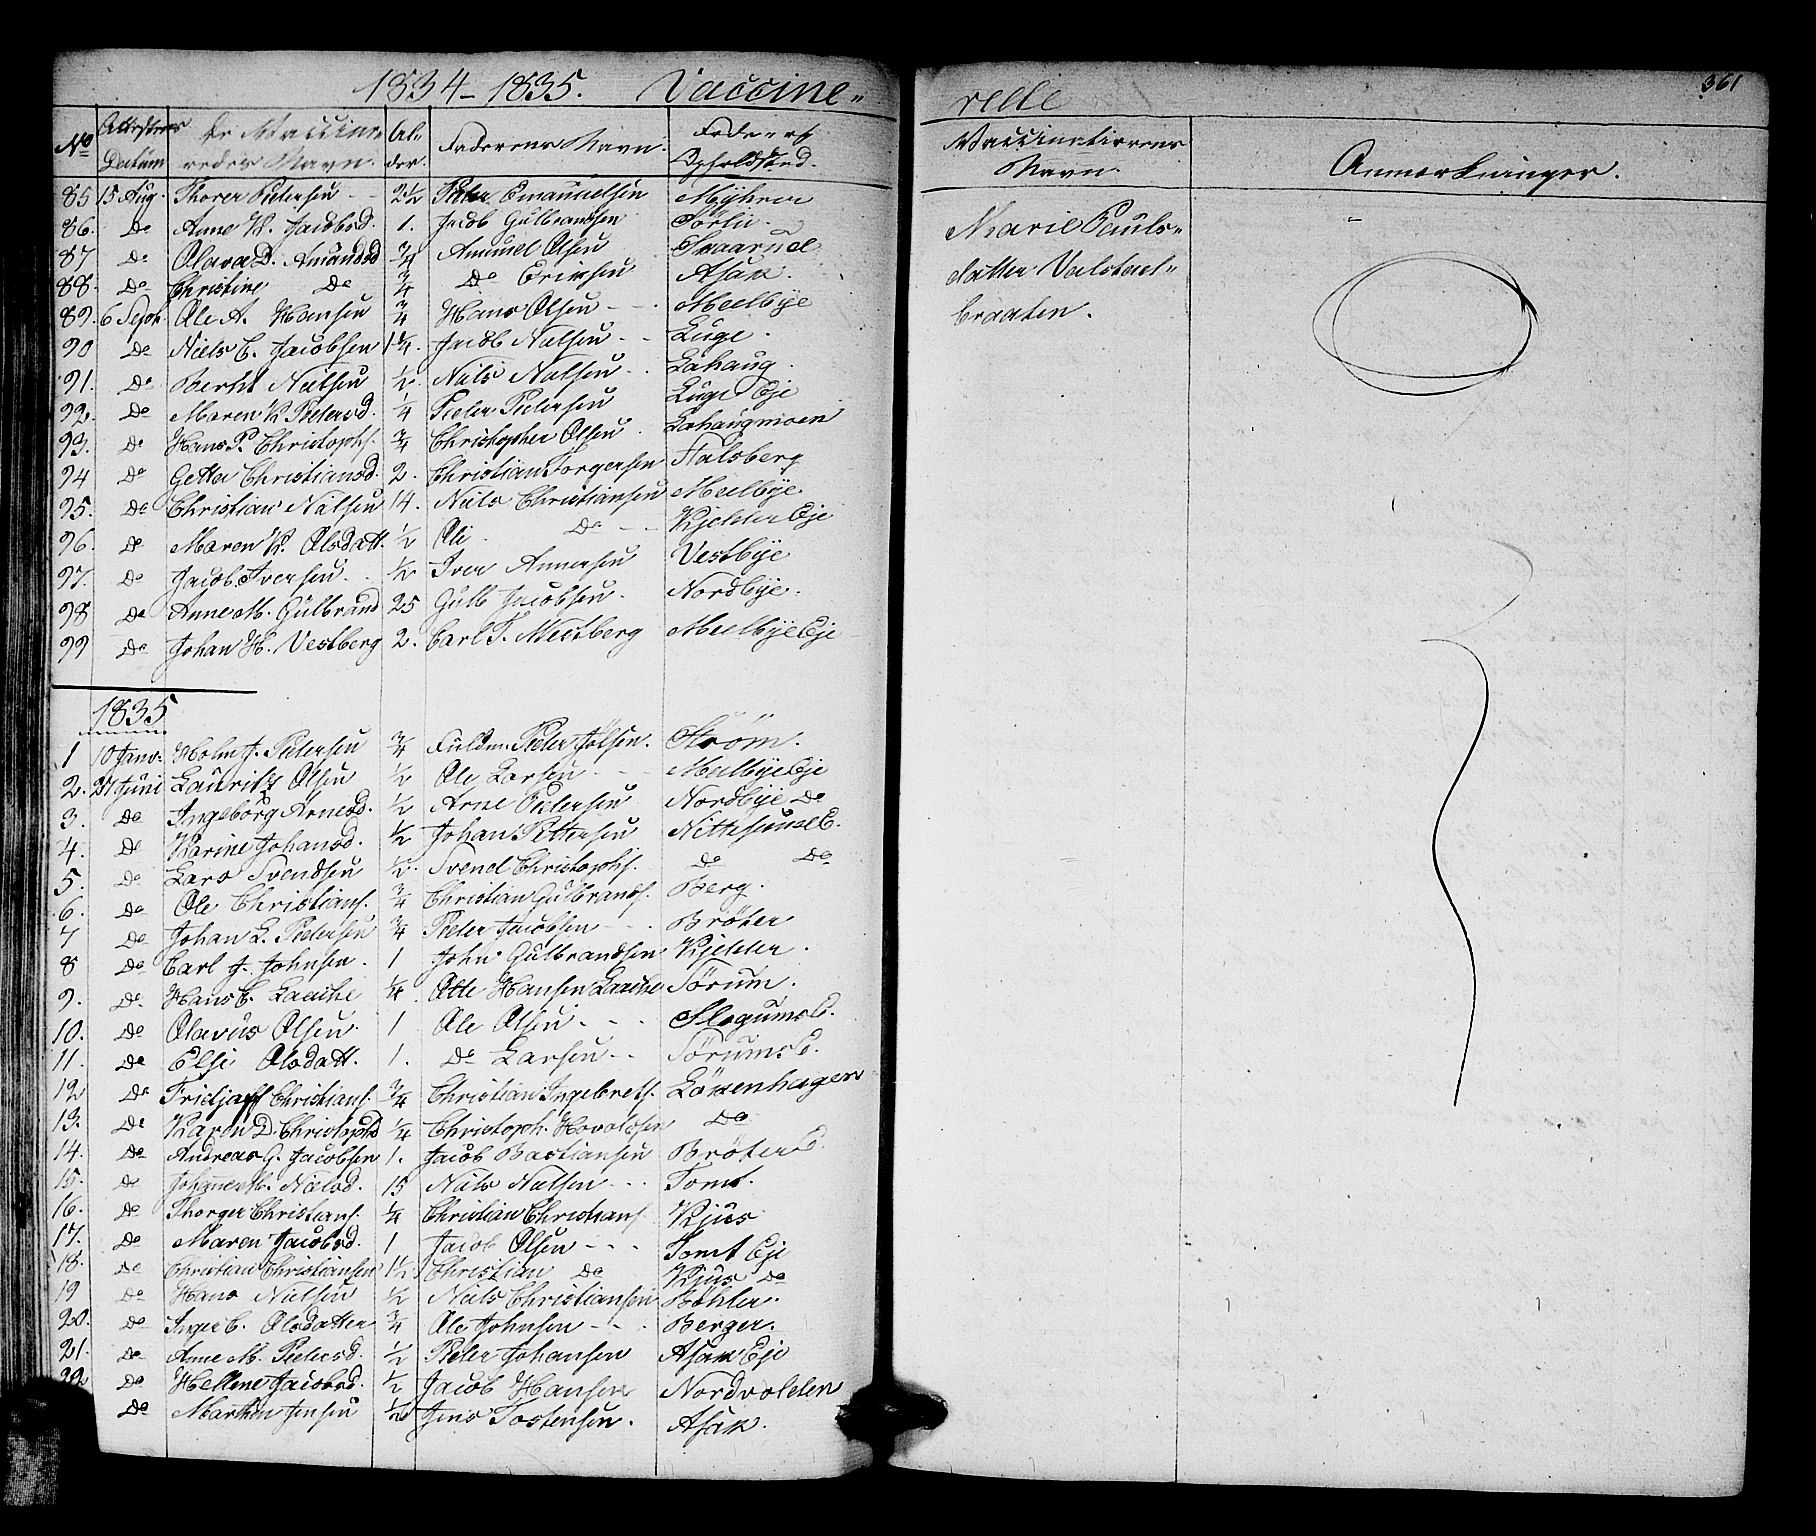 1834-1835. Vaccine-
relle
361
No Attestens Datum De Vaccineredes Navn. Alder. Faderens Navn. Føde- og Opholdsted. Vaccinatirens Navn. Anmærkninger.
85 15 Aug. Thorer Pedersen 2½ Peter Emanuelsen Myhrer
86. Do Anne K. Jacobsd. 1. Jacob Gulbrandsen Sørlie
87 Do Olava D. Amundsd ¾ Amund Olsen Svaarud
88. Do Christine Do ¾ Do Eriksen Asak.
89. 6 Seph. Ole A. Hansen ¾ Hans Olsen Melbye
90 Do Niels C. Jacobsen 1¼. Jacob Nielsen Luge.
91. Do Berht Nielsen ½. Niels Nielsen Lahaug.
92. Do Maren K. Pedersd. ¼ Peder Pedersen Luge Eje
93. Do Hans P. Christophs. ¾ Christopher Olsen Lahaugmoen
94 Do Getter Christiansd. 2. Christian Torgersen Falsberg
95. Do Christian Nielsen 14. Niels Christiansen Melbye
96. Do Maren K. Olsdatt. ½ Ole Do Kjelder Eje
97. Do Jacob Iversen ½ Iver Annersen Vestbye
98 Do Anne M. Gulbrand 25 Gulb Jacobsen. Nordbye.
99 Do Johan H. Vestberg 2. Carl T. Vestberg Melbye Eje
Marie Pauls-
datter Valstad-
braaten.
1835
1 10 Janv. Holm J. Pedersen ¾ Peder Jølsen. Strøm.
2. 21 Juni Lauritz Olsen ½ Ole Larsen Melbye Eje
3. Do Ingeborg Arnesd. ½ Arne Pedersen Nordbye Do
4. Do Karine Johansd. ½ Johan Pettersen E.
5. Do Lars Svendsen ½. Svend Christophs. Do Do
6. Do Ole Christians. ¾ Christian Gulbrands. Berg.
7 Do Johan L. Pedersen ¾ Peder Jacobsen Brøter
8 Do Carl J. Johnsen. 1 John Gulbrandsen Kjelder.
9. Do Hans C. Laache ¼ Otte Hansen Laache Sørum.
10. Do Olavus Olsen. 1 Ole Olsen Slogum E.
11. Do Elsi Olsdatt. 1. Do Larsen Sørums E.
12 Do Fridjoff Christians. ¾ Christian Ingebrets. Løkenhagen
13. Do Karen D. Christophd ¼ Christoph. Hovoldsen Do
14. Do Andreas G. Jacobsen 1. Jacob Bastiansen Brøter E.
15. Do Johanne M. Nielsd. 15 Niels Nielsen Tomt.
16. Do Thorger Christians. ¼ Christian Christians. Kjus
17. Do Maren Jacobsd. 1 Jacob Olsen Tomt Eje
18. Do Christian Christiansen 1½ Christian Do Kjus Do
19 Do Hans Nielsen ½ Niels Christiansen Bøhler.
20. Do Inger C. Olsdatter ¾ Ole Johnsen Berger.
21. Do Anne M. Pedersd. ½ Peder Johansen Asak Eje
22 Do Hellene Jacobsd. ½ Jacob Hansen Nordvolden
Do Marthin Jensen ½ Jens Tostensen. Asak.